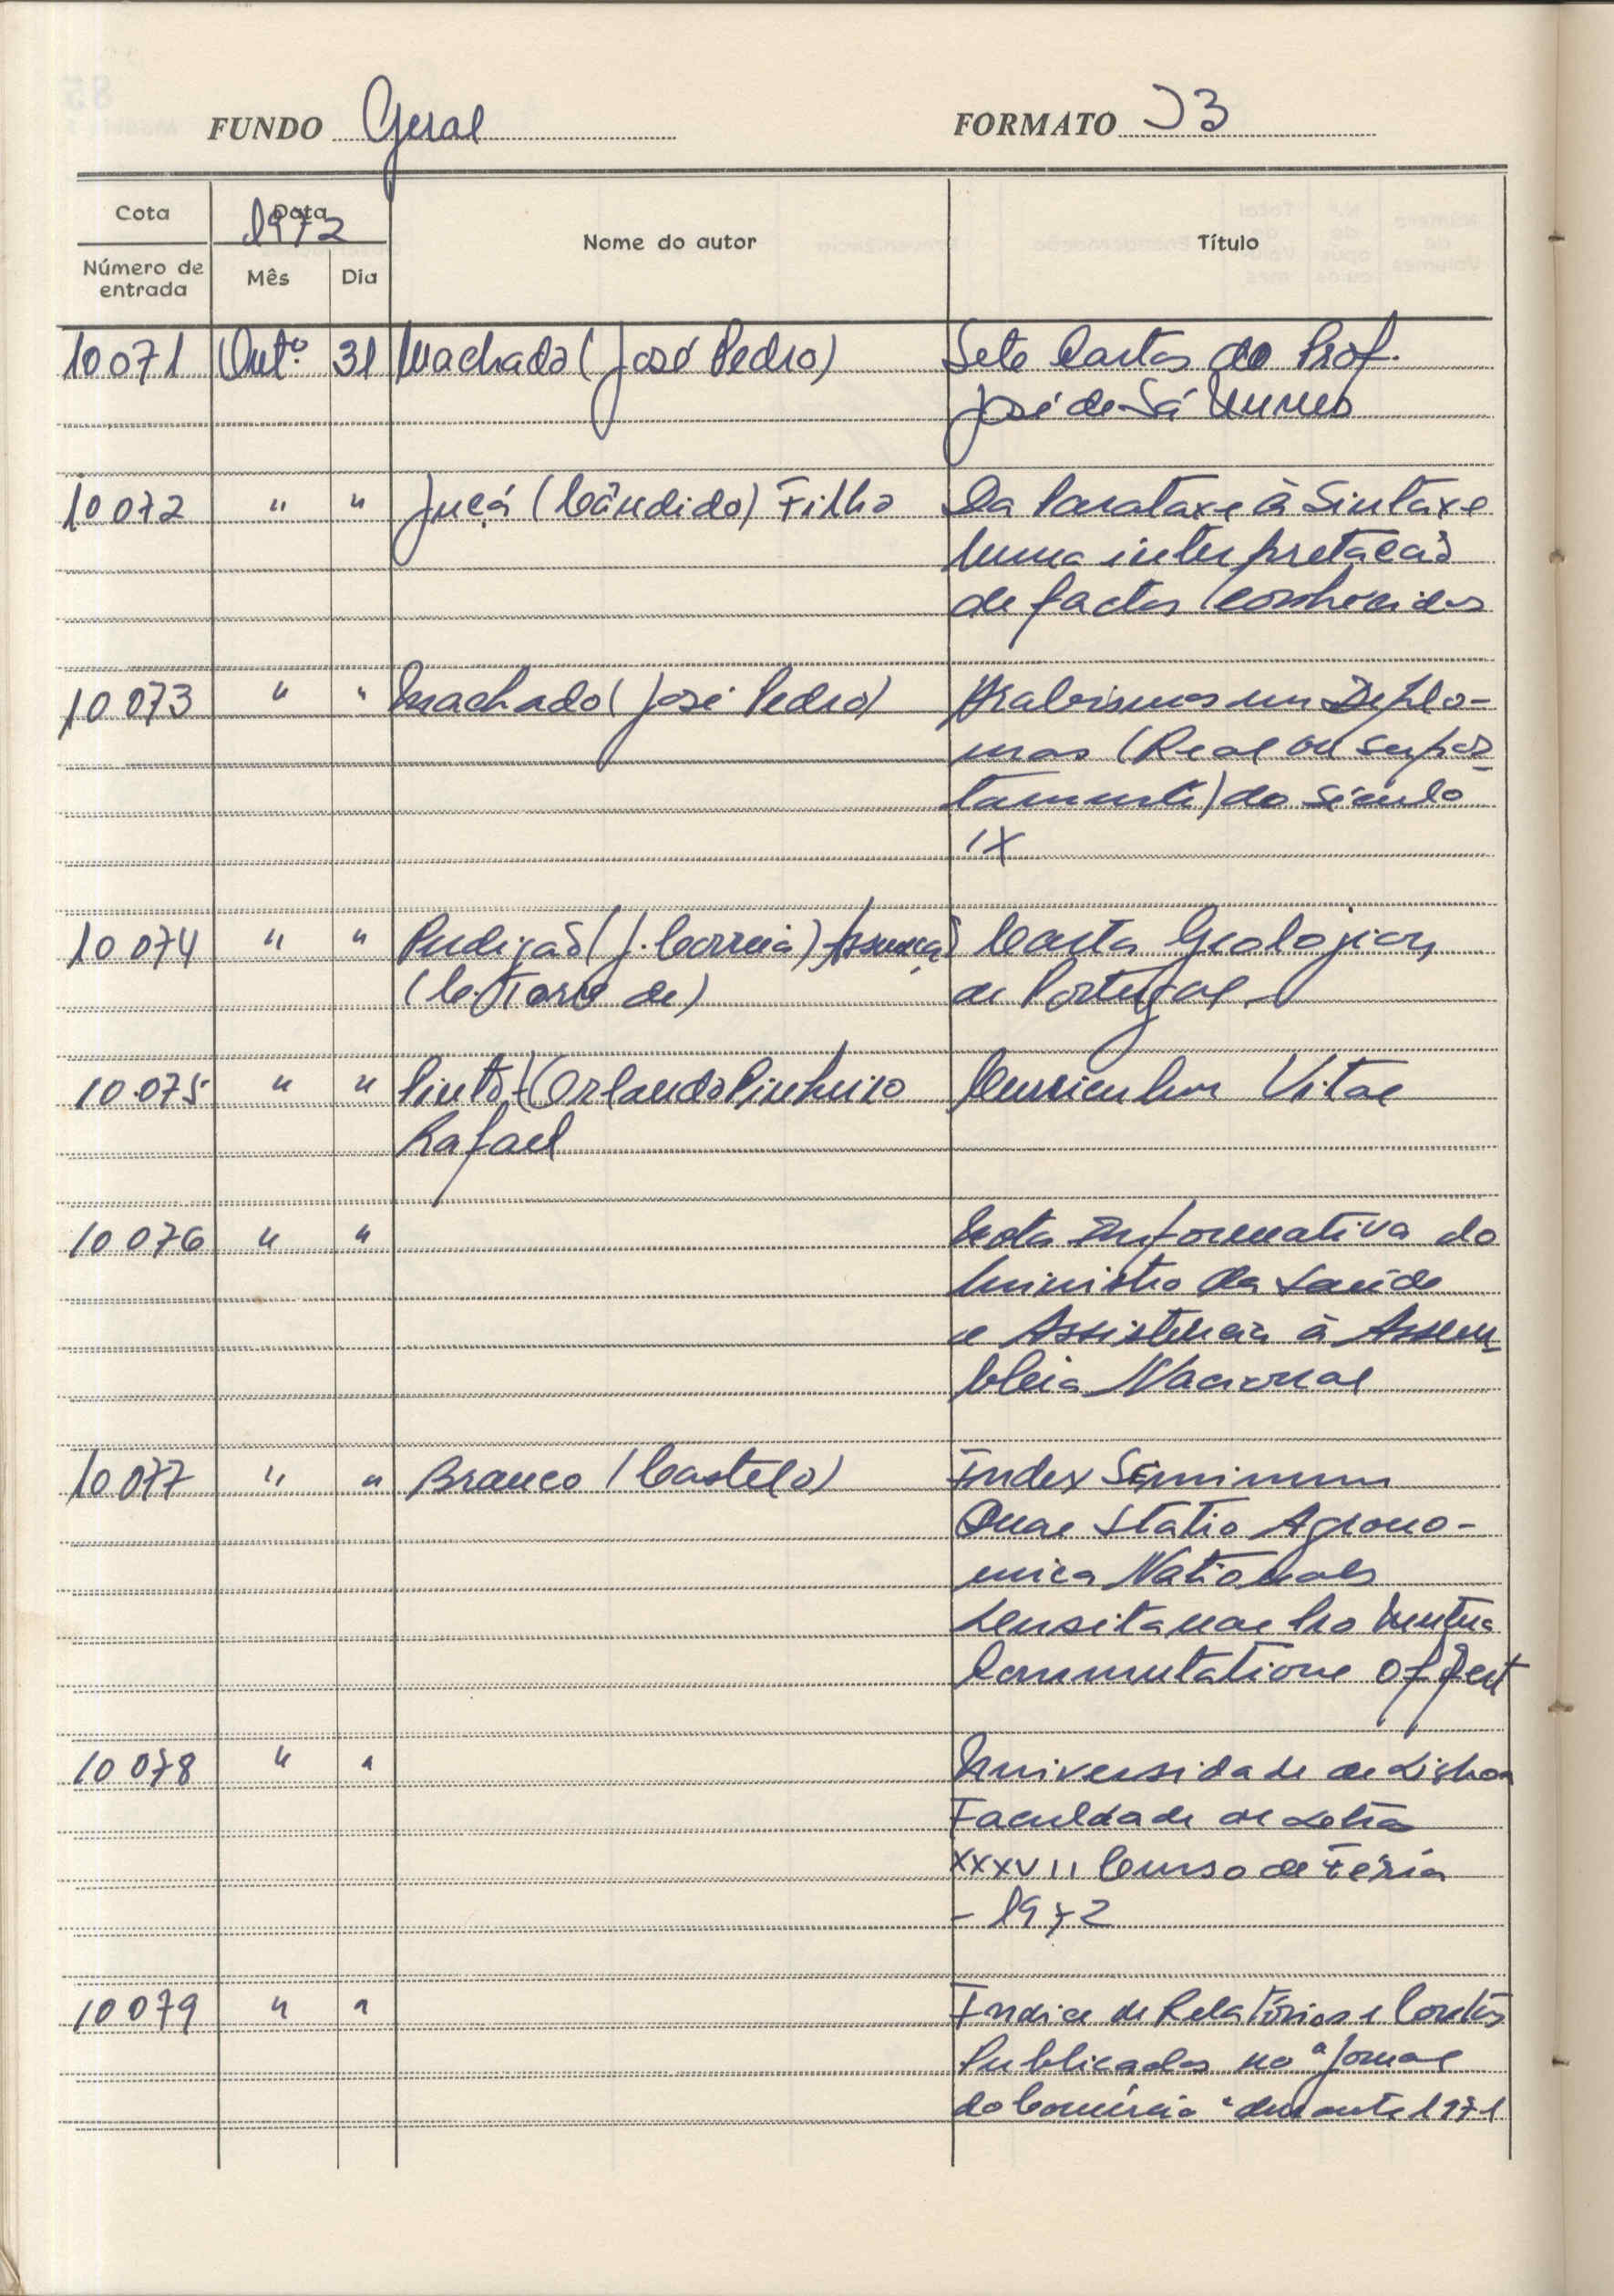 FUNDO Geral FORMATO J3
Cota Data 1972 Nome do autor Título
Número de entrada Mês Dia
10071 Outº. 31 Machado (José Pedro) Sete Cartas do Prof.
José de Sá Nunes
10072 " " Jucá (Cândido) Filho Da Parataxe à Sintaxe
numa interpretação
de factos conhecidos
10073 " " Machado (José Pedro) Arabismos num Diplo-
mas (Real ou supos
tamente) do século
IX
10074 " " Perdigão (J. Correia) Assunção Carta Geológica
(C. Torre de) de Portugal
10.075 " " Pinto (Orlando Pinheiro Curriculum Vitae
Rafael
10076 " " Nota Informativa do
Ministro da Saúde
e Assistência à Assem
bleia Nacional
10077 " " Branco (Castelo) Index Seminum
Quae Statio Agrono-
mica Nationales
Lusitanae Pro Mutua
Commutatione Offert
10078 " " Universidade de Lisboa
Faculdade de Letras
XXXVII Curso de Férias
- 1972
10079 " " Indice de Relatórios e Contas
Publicados no "Jornal
do Comércio" durante 1971